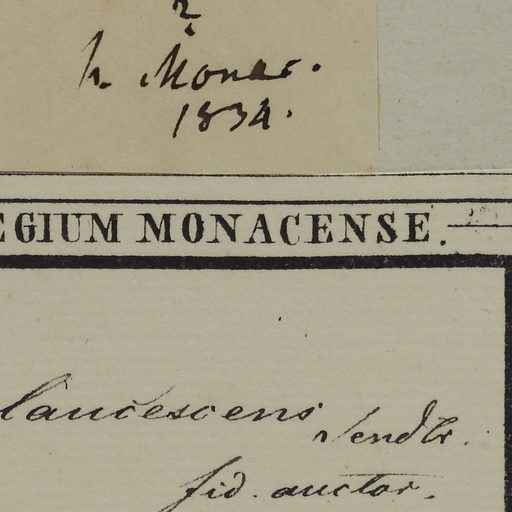 ?
h. Monac.
1834.
EGIUM MONACENSE.
laucescens Sendtr.
fid. auctor.